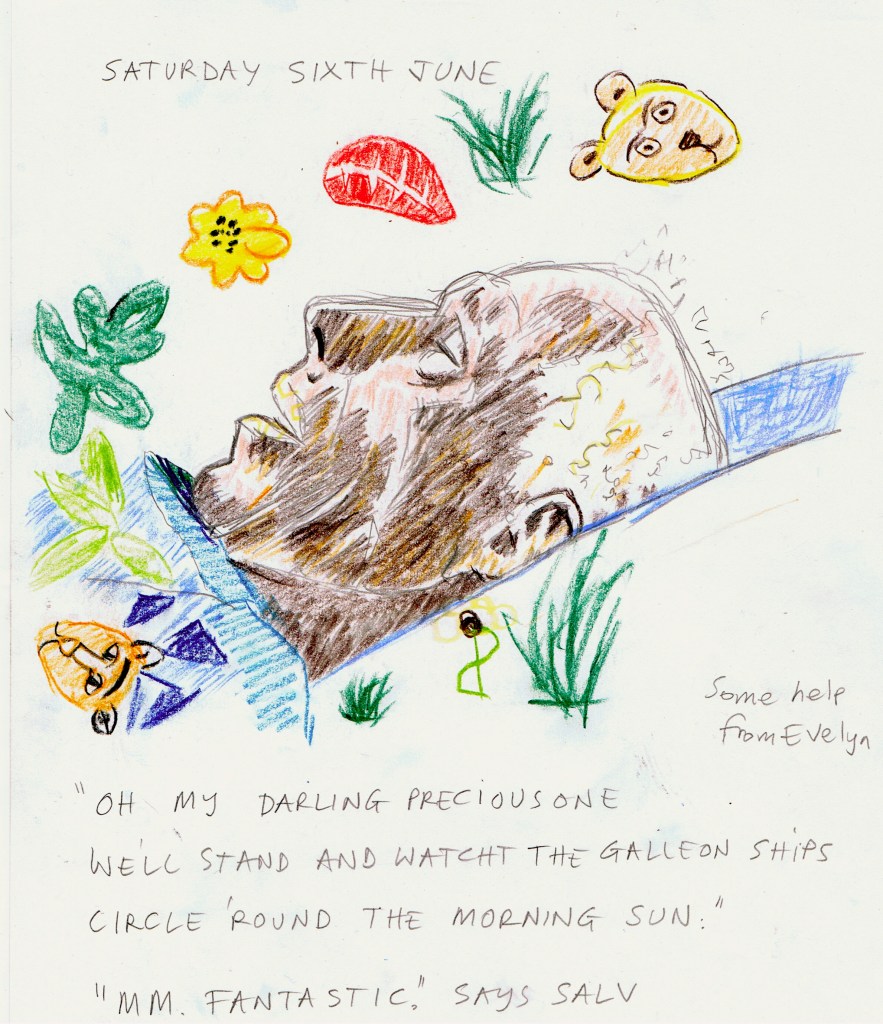 SATURDAY SIXTH JUNE
Some help
from Evelyn
"OH MY DARLING PRECIOUS ONE
WE'LL STAND AND WATCHT THE GALLEON SHIPS
CIRCLE 'ROUND THE MORNING SUN."
"MM. FANTASTIC," SAYS SALV